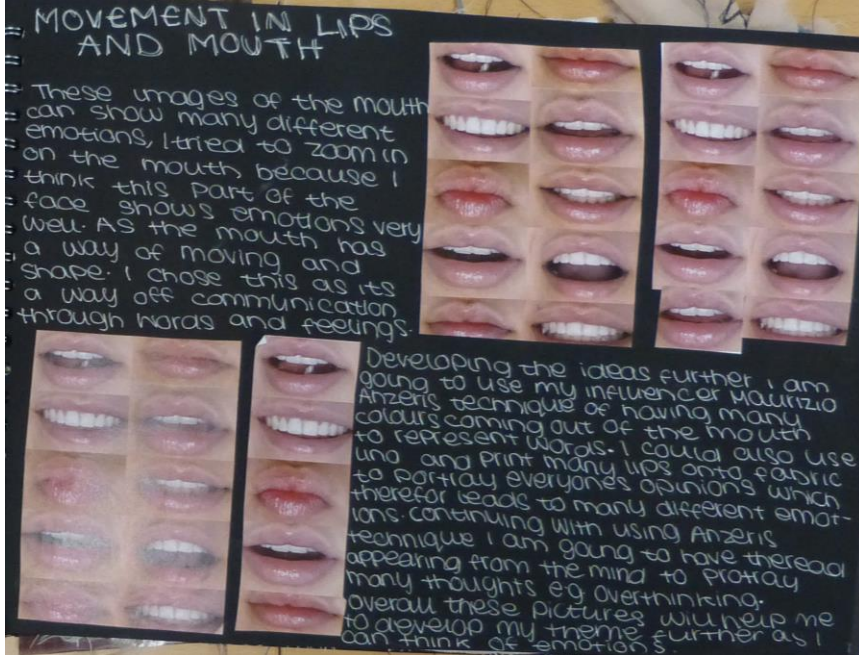 MOVEMENT IN LIPS
AND MOUTH
These images of the mouth
can show many different
emotions, I tried to zoom in
on the mouth because I
think this part of the
face shows emotions very
well. As the mouth has
a way of moving and
shape. I chose this as its
a way off communication
through words and feelings.
Developing the ideas further i am
going to use my influencer Maurizio
Anzeris technique of having many
colours coming out of the mouth
to represent words. I could also use
lino and print many lips onto fabric
to portray everyones opinions which
therefor leads to many different emot-
ions. continuing with using Anzeris
technique I am going to have theread
appearing from the mind to protray
many thoughts e.g overthinking.
overall these pictures will help me
to develop my theme further as I
can think of emotions.